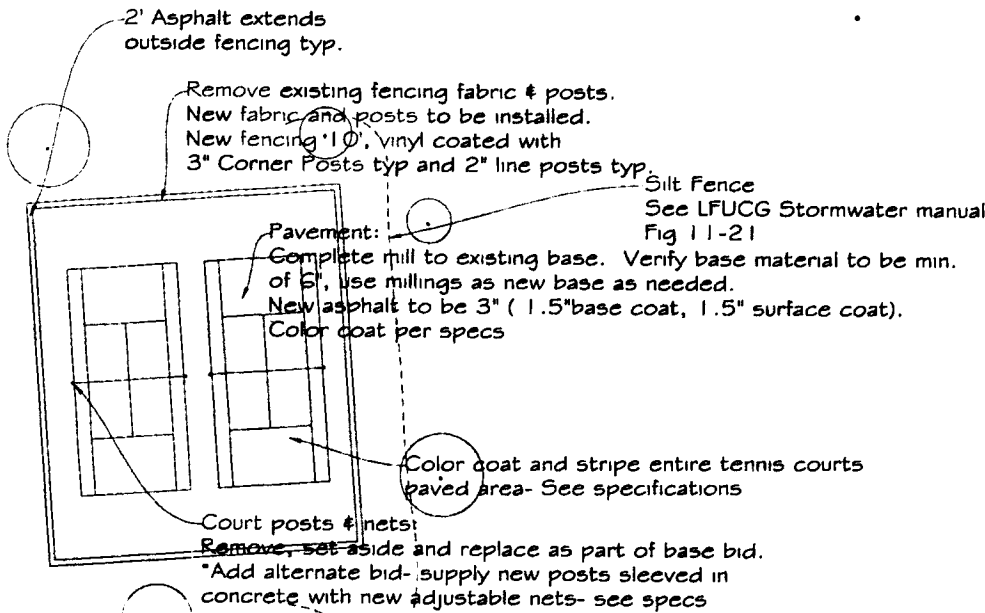 2' Asphalt extends
outside fencing typ.
Remove existing fencing fabric & posts.
New fabric and posts to be installed.
New fencing '10', vinyl coated with
3" Corner Posts typ and 2" line posts typ.
Silt Fence
See LFUCG Stormwater manual
Fig 11-21
Pavement:
Complete mill to existing base. Verify base material to be min.
of 6", use millings as new base as needed.
New asphalt to be 3" ( 1.5"base coat, 1.5" surface coat).
Color coat per specs
Color coat and stripe entire tennis courts
paved area- See specifications
Court posts & nets:
Remove, set aside and replace as part of base bid.
*Add alternate bid- supply new posts sleeved in
concrete with new adjustable nets- see specs